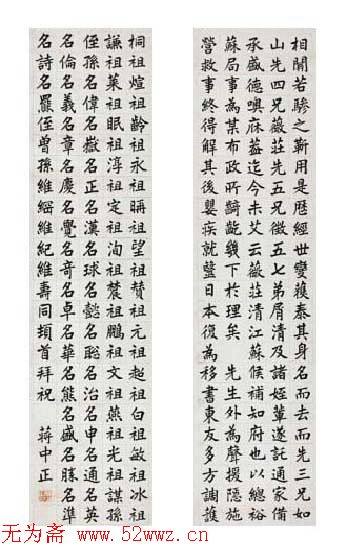 相關若驂之靳用是歷經世變獲泰其身名而去而先三兄如
山先四兄薇莊先五兄微五七弟屑清及諸姪輩遂託通家備
承盛德噢庥葢迄今未艾云薇莊清江蘇候補知府也以總裕
蘇局事為某布政所齮齕幾下於理矣 先生外為聲援隱施
營救事終得解其後嬰疾就毉日本復為移書東友多方調護
桐祖煊祖齡祖永祖暚祖望祖贊祖元祖超祖白祖敏祖冰祖
謙祖萊祖眠祖淳祖定祖洵祖麓祖鵬祖文祖燕祖光祖謀孫
侄孫名偉名嶽名正名漢名球名懿名聡名治名申名通名英
名倫名義名章名慶名覺名奇名卓名華名熊名盛名勝名準
名詩名羅侄曾孫維綱維紀維壽同頓首拜祝
蔣中正
无为斋 www.52wwz.cn